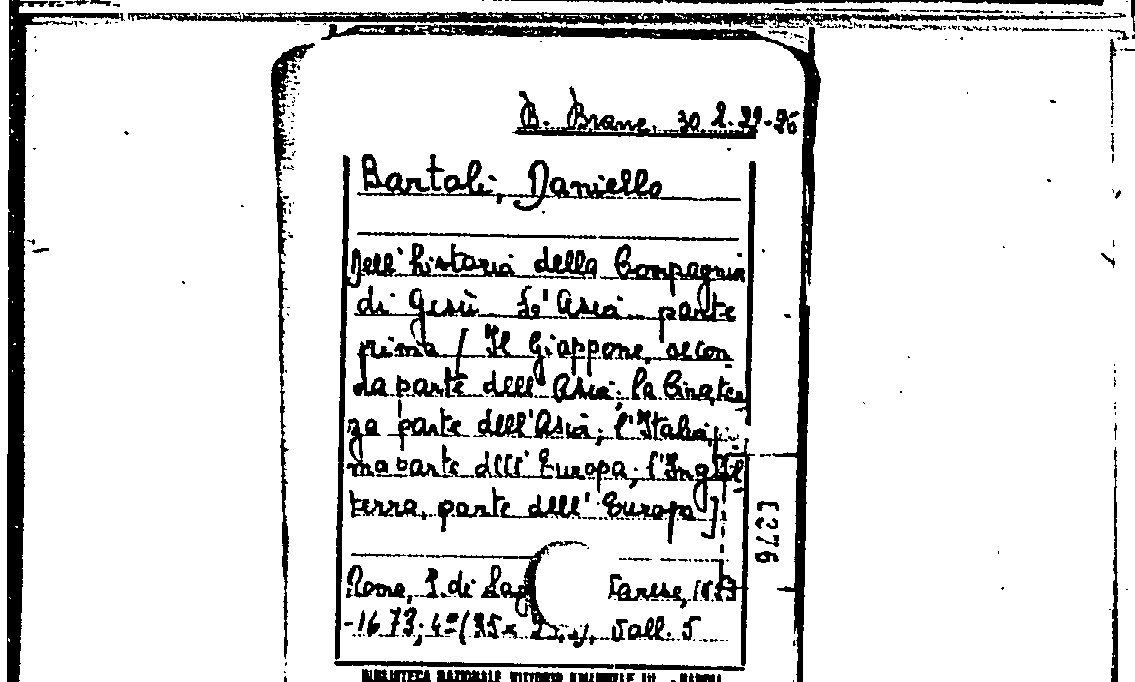 B. Branc. 30.2.
Bartoli, Daniello
Dell'historia della Compagnia
di Gesù L'Asia parte
prima / Il Giappone, secon
da parte dell'Asia; la Cina, ter
za parte dell'Asia; l'Italia, pri
ma parte dell'Europa; l'Inghil
terra, parte dell'Europa]
Roma, Varese,
-1673; 4º (35 x 5 all. 5
[276
BIBLIOTECA NAZIONALE VITTORIO EMANUELE III - NAPOLI